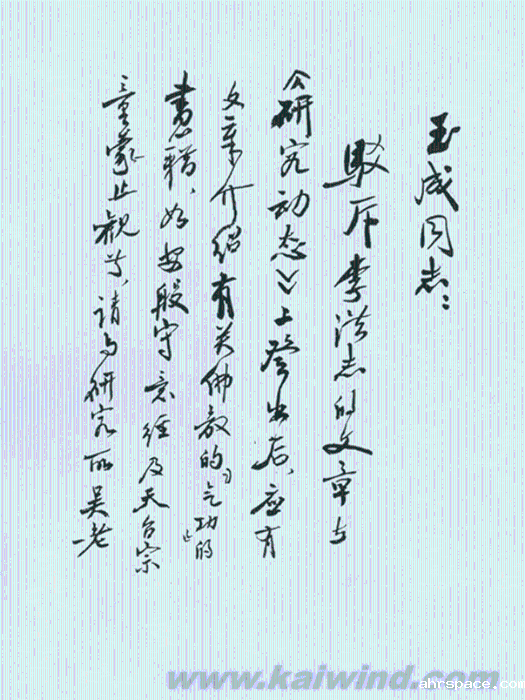 玉成同志：
驳斥李洪志的文章在
《研究动态》上登出后，应有
文章介绍有关佛教的“气功”的
书籍，如安般守意经及天台宗
童蒙止观等，请与研究所吴老
www.kaiwind.com
ahrspace.com